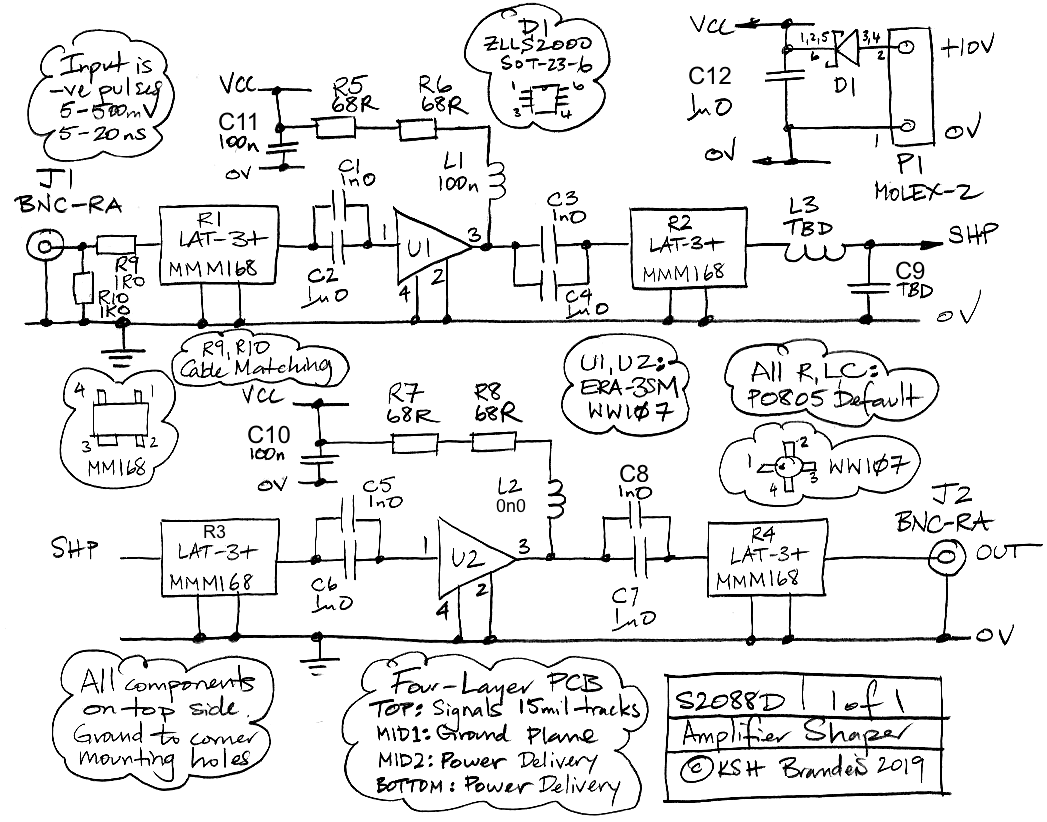 Input is
-ve pulses
5-500mV
5-20ns
J1
BNC-RA
R9
1R0
R10
1K0
R1
LAT-3+
MMM168
VCC
C11
100n
0V
R5
68R
R6
68R
L1
100n
C1
1n0
C2
1u0
1
U1
3
4
2
D1
ZLLS2000
SOT-23-6
1
6
3
4
C3
1n0
C4
1u0
R2
LAT-3+
MMM168
L3
TBD
SHP
C9
TBD
0V
VCC
1,2,5
6
3,4
2
D1
+10V
C12
1u0
0V
1
0V
P1
MOLEX-2
R9, R10
Cable Matching
4
1
3
2
MM168
U1, U2:
ERA-3SM
WW107
All R,L,C:
P0805 Default
1
2
3
4
WW107
VCC
C10
100n
0V
R7
68R
R8
68R
L2
0n0
SHP
R3
LAT-3+
MMM168
C5
1n0
C6
1u0
1
U2
3
4
2
C8
1n0
C7
1u0
R4
LAT-3+
MMM168
J2
BNC-RA
OUT
0V
All components
on top side.
Grand to corner
mounting holes
Four-Layer PCB
TOP: Signals 15mil tracks
MID1: Ground Plane
MID2: Power Delivery
BOTTOM: Power Delivery
S2088D 1 of 1
Amplifier Shaper
© KSH Brandeis 2019